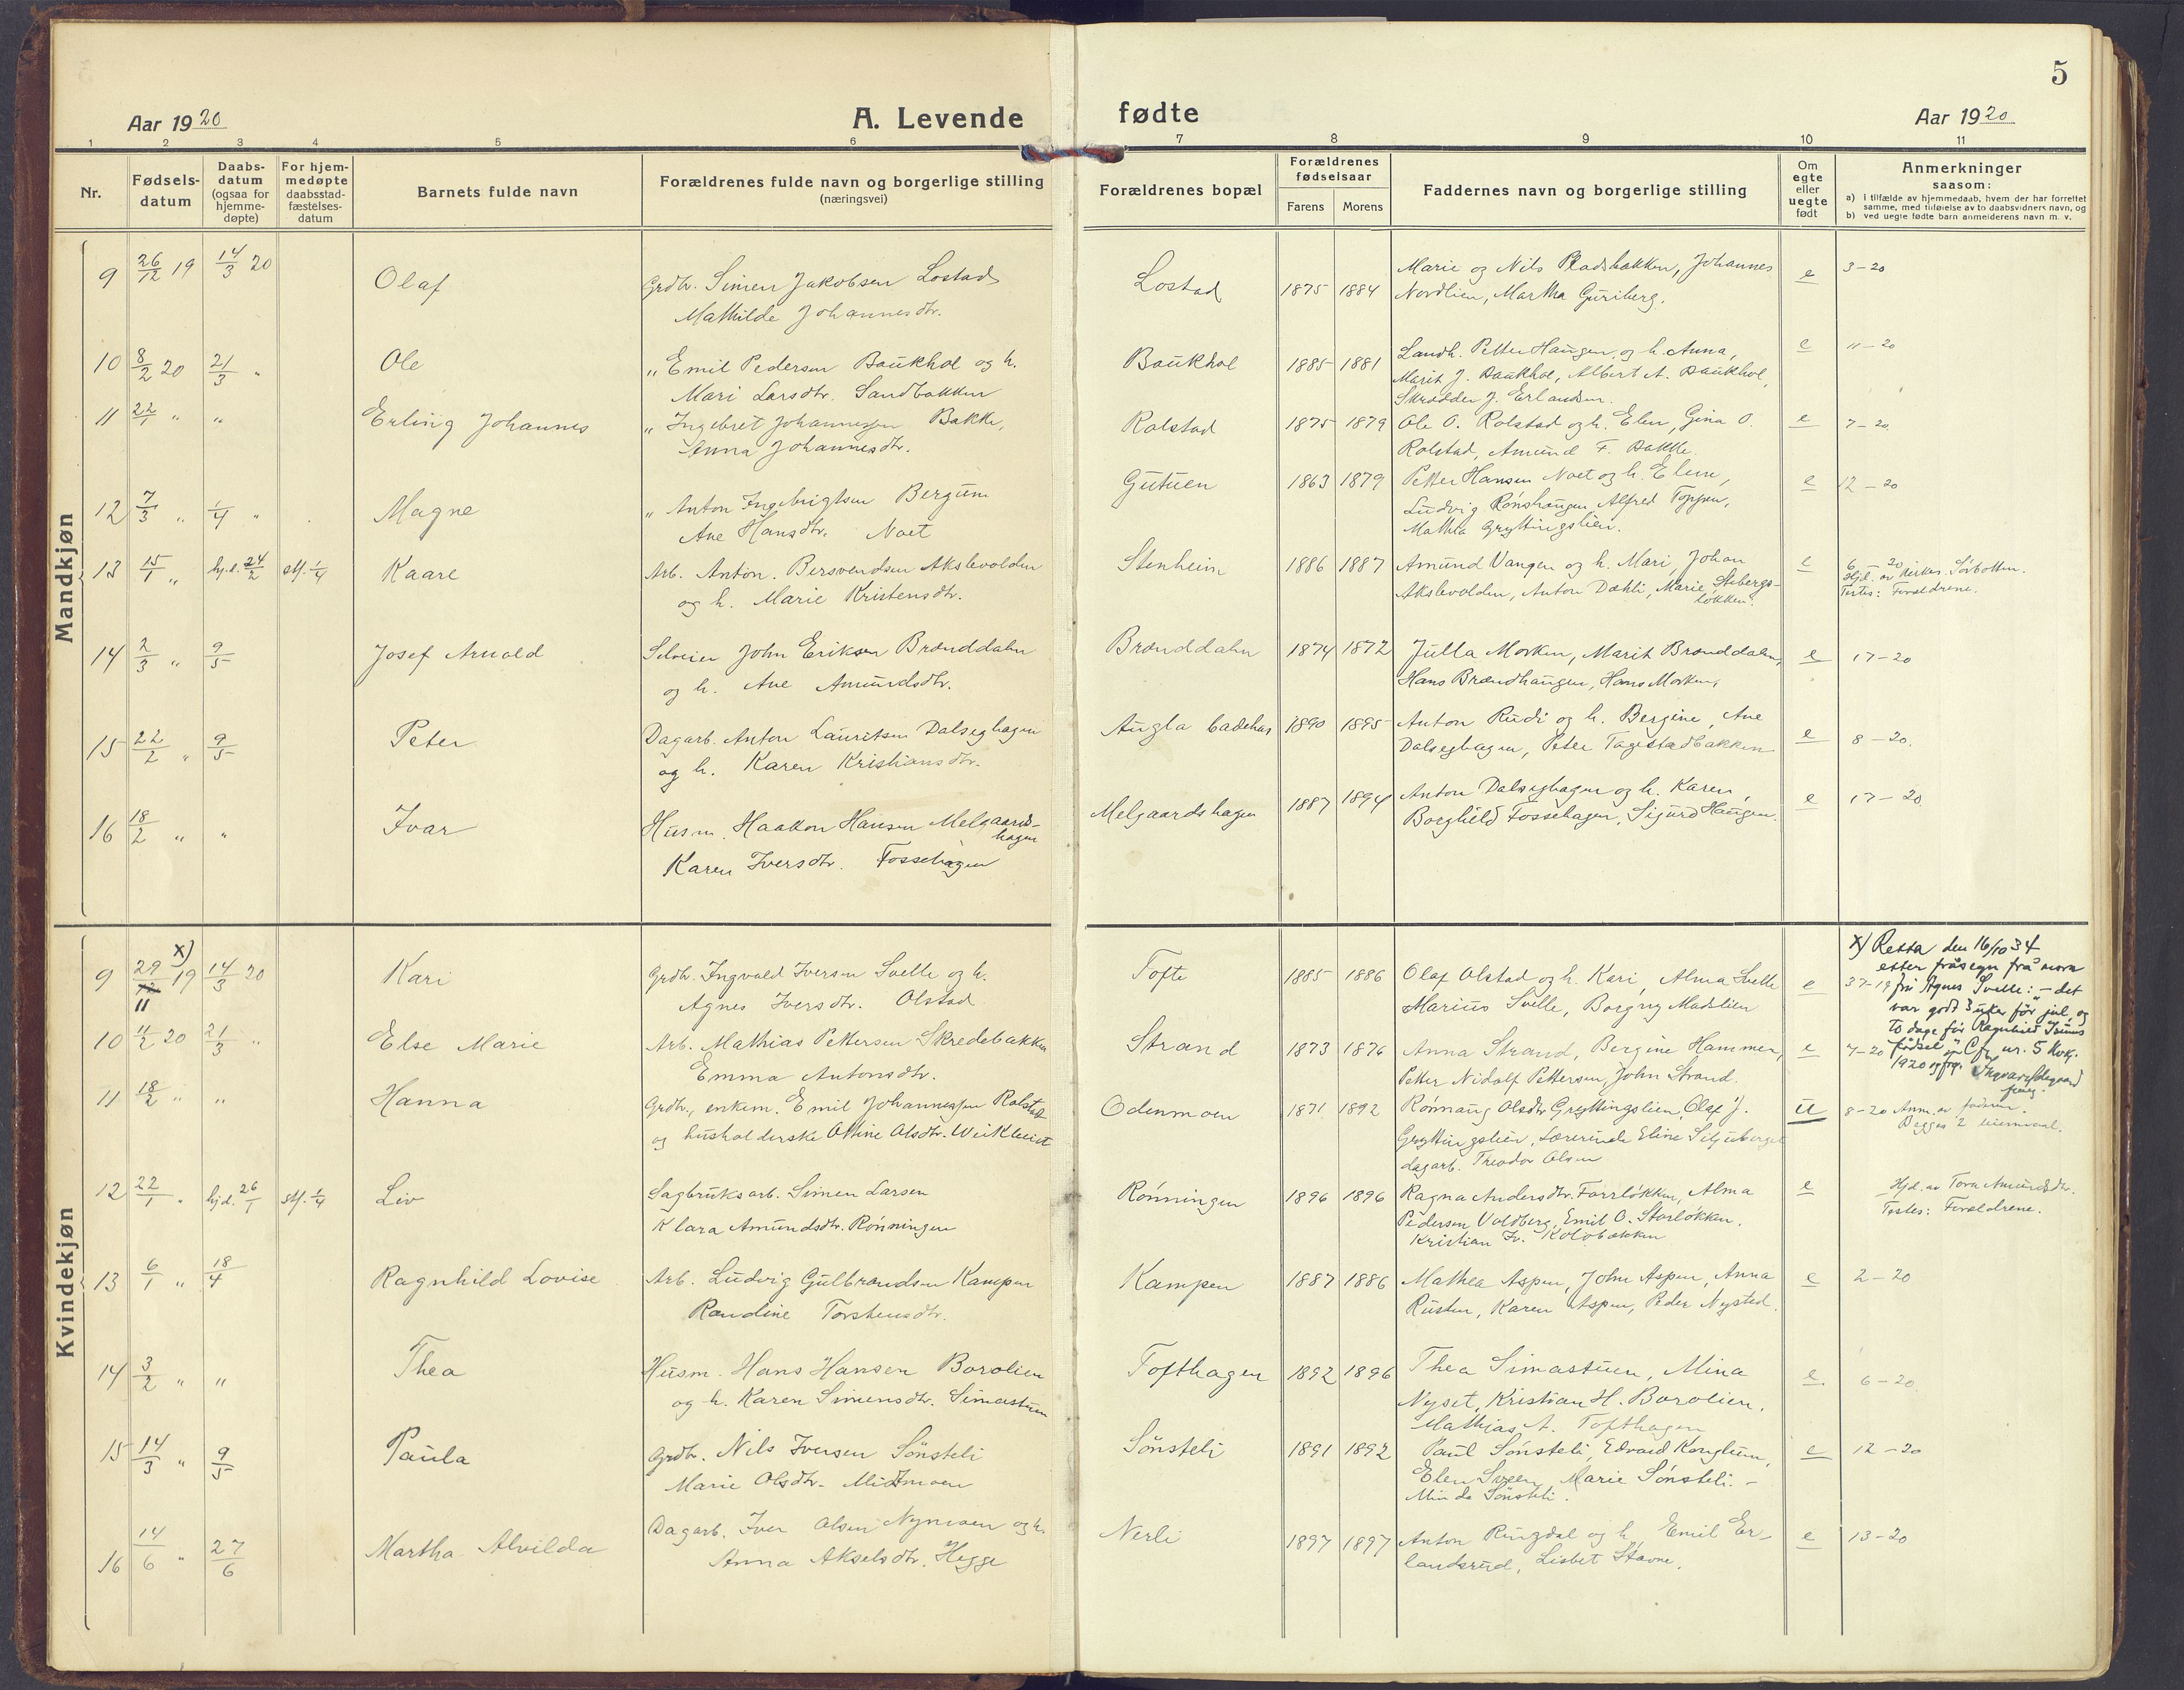 5
Aar 1920
A. Levende fødte
Aar 1920
1 2 3 4 5 6 7 8 9 10 11
Nr.
Fødsels-
datum
Daabs-
datum
(ogsaa for
hjemme-
døpte)
For hjem-
medøpte
daabsstad-
fæstelses-
datum
Barnets fulde navn
Forældrenes fulde navn og borgerlige stilling
(næringsvei)
Forældrenes bopæl
Forældrenes
fødselsaar
Farens Morens
Faddernes navn og borgerlige stilling
Om
egte
eller
uegte
født
Anmerkninger
saasom:
a) i tilfælde av hjemmedaab, hvem der har forrettet
samme, med tilføielse av to daabsvidners navn, og
b) ved uegte fødte barn anmelderens navn m. v.
Mandkjøn
9 26/12 19 14/3 20
Olaf
Grdbr. Simen Jakobsen Lostad
Mathilde Johannesdtr.
Lostad
1875 1884
Marie og Nils Pladsbakken, Johannes
Nordlien, Martha Guriberg.
e
3-20
10 8/2 20 21/3 "
Ole
" Emil Pedersen Baukhol og h.
Mari Larsdtr. Sandbakken
Baukhol
1885 1881
Landh. Petter Haugen og h. Anna,
Marit J. Baukhol, Albert A. Baukhol,
Skrædder J. Erlandsen.
e
11-20
11 22/1 " "
Erling Johannes
" Ingebret Johannessen Bakke,
Anna Johannesdtr.
Rolstad
1875 1879
Ole O. Rolstad og h. Elen, Gina O.
Rolstad, Amund F. Bakke.
e
7-20
12 7/3 " 1/4 "
Magne
" Anton Ingebrigtsen Bergum
Ane Hansdtr. Noet
Gutuen
1863 1879
Petter Hansen Noet og h. Elene,
Ludvig Rønshaugen, Alfred Toppen,
Mathea Gryttingslien.
e
12-20
13 15/1 " hj.d. 24/2 stf. 1/4
Kaare
Arb. Anton Bersvendsen Akslevolden
og h. Marie Kristensdtr.
Stenheim
1886 1887
Amund Vangen og h. Mari, Johan
Akslevolden, Anton Dæhli, Marie Stebergs-
løkken.
e
6-20
Hjd. av Kirkes. Sørbotten.
Testes: Forældrene.
14 2/3 " 9/5
Josef Arnold
Selveier John Eriksen Brænddalen
og h. Ane Amundsdtr.
Brænddalen
1874 1872
Julla Morken, Marit Brænddalen,
Hans Brændhaugen, Hans Morken,
e
17-20
15 22/2 " 9/5
Peter
Dagarb. Anton Lauritsen Dalseghagen
og h. Karen Kristiansdtr.
Augla badehus
1890 1895
Anton Rudi og h. Bergine, Ane
Dalseghagen, Peter Tagestadbakken
e
8-20.
16 18/2 " "
Ivar
Husm. Haakon Hansen Melgaards-
hagen
Karen Iversdtr. Fossehagen
Melgaardshagen
1887 1894
Anton Dalseghagen og h. Karen,
Borghild Fossehagen, Sigurd Haugen.
e
17-20
Kvindekjøn
x)
9 29/12 19 14/3 20
11
Kari
Grdbr. Ingvald Iversen Svelle og h.
Agnes Iversdtr. Olstad
Tofte
1885 1886
Olaf Olstad og h. Kari, Alma Svelle
Marius Svelle, Borgny Madslien
e
37-19
x) Retta den 16/10 34
etter fråsegn frå mora
fru Agnes Svelle: - "det
var godt 3 uker før jul, og
to dage før Ragnhild Isums
fødsel". Cfr. nr. 5 kvk.
1920 og frg.
10 11/2 20 21/3 "
Else Marie
Arb. Mathias Pettersen Skredebakken
Emma Antonsdtr.
Strand
1873 1876
Anna Strand, Bergine Hammer,
Petter Nidolf Pettersen, John Strand.
e
7-20
11 18/2 " "
Hanna
Grdbr., enkem. Emil Johannessen Rolstad
og husholderske Oline Olsdtr. Weikleivt
Odenmoen
1871 1892
Rønnaug Olsdtr Gryttingslien, Olaf J.
Gryttingslien, Lærerinde Eline Siljuberget
dagarb. Theodor Olsen
u
8-20 Anm. av faderen.
Begges 2 leiermaal.
12 22/1 " hjd. 26/1 stf. 1/4
Liv
Sagbruksarb. Simen Larsen
Klara Amundsdtr. Rønningen
Rønningen
1896 1896
Ragna Andersdtr. Forrløkken, Alma
Pedersen Voldberg, Emil O. Storløkken.
Kristian Iv. Kolobakken
e
Hjd. av Tora Amundsdtr.
Testes: Forældrene.
13 6/1 " 18/4
Ragnhild Lovise
Arb. Ludvig Gulbrandsen Kampen
Randine Torstensdtr.
Kampen
1887 1886
Mathea Aspen, John Aspen, Anna
Rusten, Karen Aspen, Peder Nysted.
e
2-20
14 3/2 " "
Thea
Husm. Hans Hansen Borolien
og h. Karen Simensdtr. Simastuen
Tofthagen
1892 1896
Thea Simastuen, Mina
Nyset, Kristian H. Borolien.
Mathias A. Tofthagen
e.
6-20
15 14/3 " 9/5
Paula
Grdbr. Nils Iversen Sønsteli
Marie Olsdtr. Midtmoen
Sønsteli
1891 1892
Paul Sønsteli, Edvard Konglum,
Elen Sveen, Marie Sønsteli. -
Minda Sønsteli.
e
12-20
16 14/6 " 27/6
Martha Alvilda
Dagarb. Iver Olsen Nymoen og h.
Anna Akselsdtr. Hegge
Nerli
1897 1897
Anton Ringdal og h, Emil Er-
landsrud, Lisbet Stavne.
e
13-20